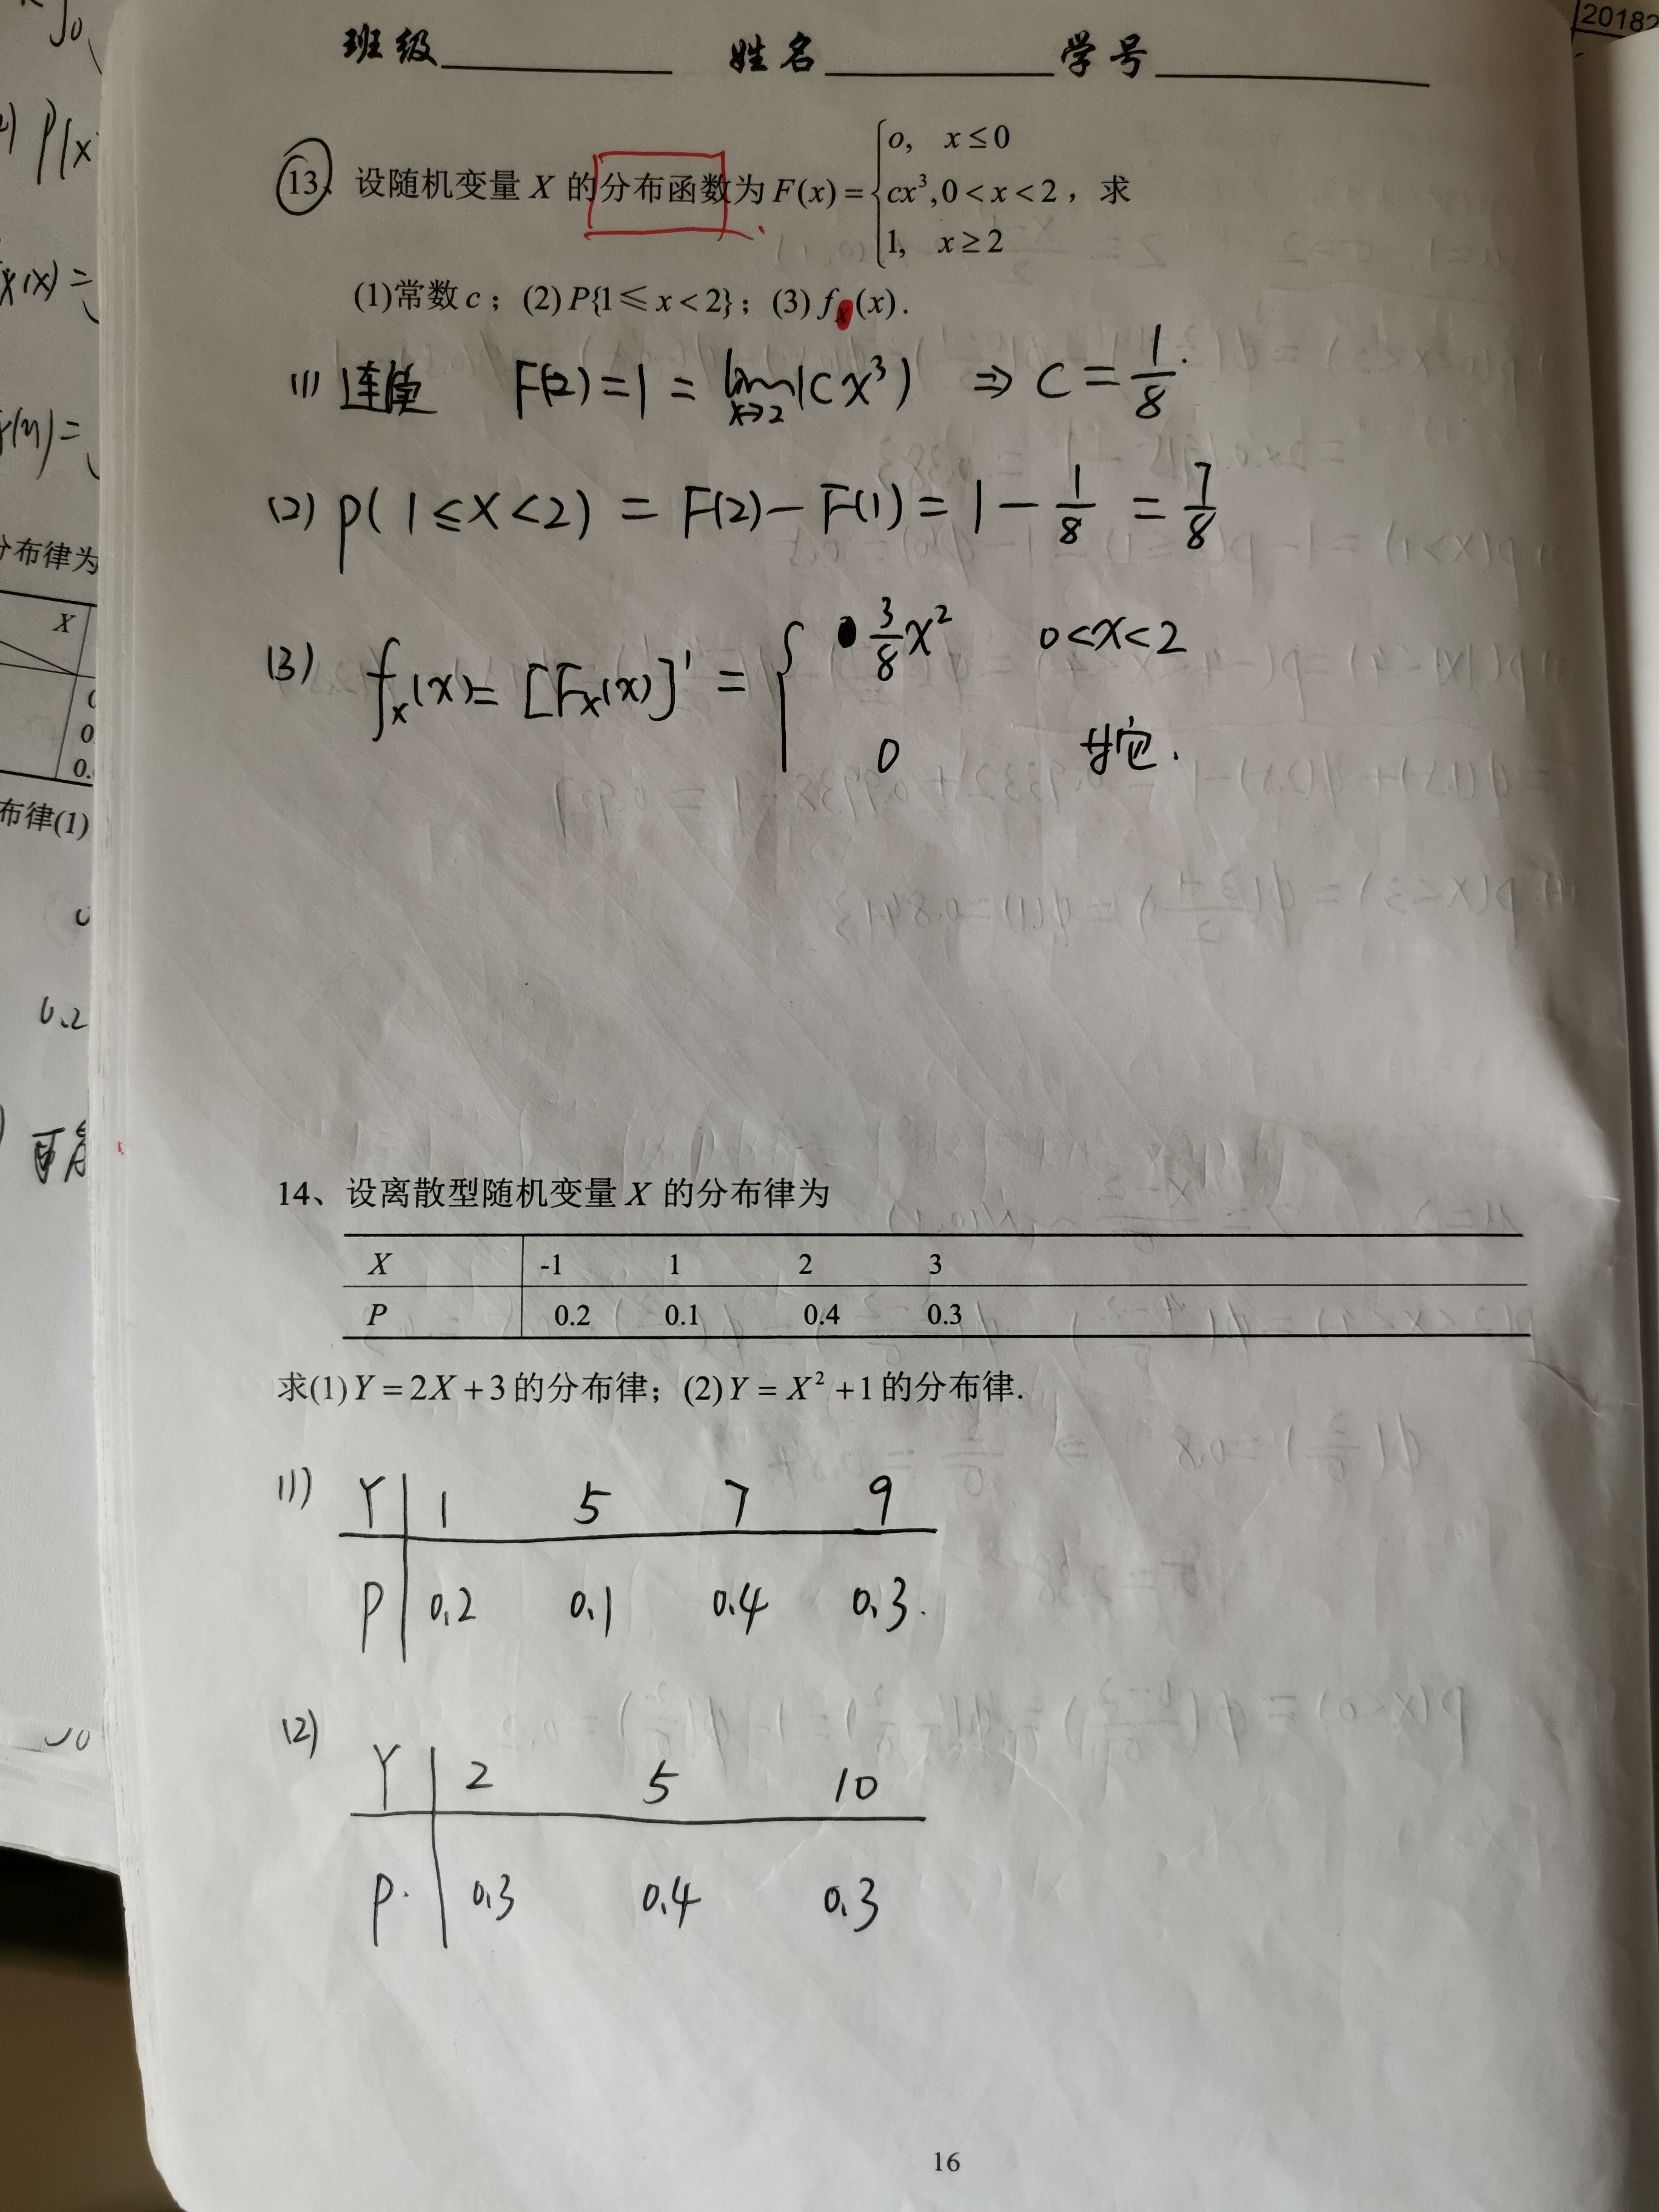 20182
班级 姓名 学号
13、设随机变量 X 的分布函数为 F(x) = { o, x ≤ 0
cx³, 0 < x < 2，求
1, x ≥ 2
(1)常数 c；(2) P{1 ≤ x < 2}；(3) fx(x).
(1) 连续 F(2) = 1 = lim x→2 (cx³) ⇒ C = 1/8.
(2) P( 1 ≤ X < 2 ) = F(2) − F(1) = 1 − 1/8 = 7/8
(3) fx(x) = [Fx(x)]' = { 3/8 x² 0<x<2
0 其它.
14、设离散型随机变量 X 的分布律为
X -1 1 2 3
P 0.2 0.1 0.4 0.3
求(1) Y = 2X + 3 的分布律；(2) Y = X² + 1 的分布律.
(1) Y 1 5 7 9
P 0.2 0.1 0.4 0.3.
(2)
Y 2 5 10
P. 0.3 0.4 0.3
16
分布律为
X
布律(1)
0.2